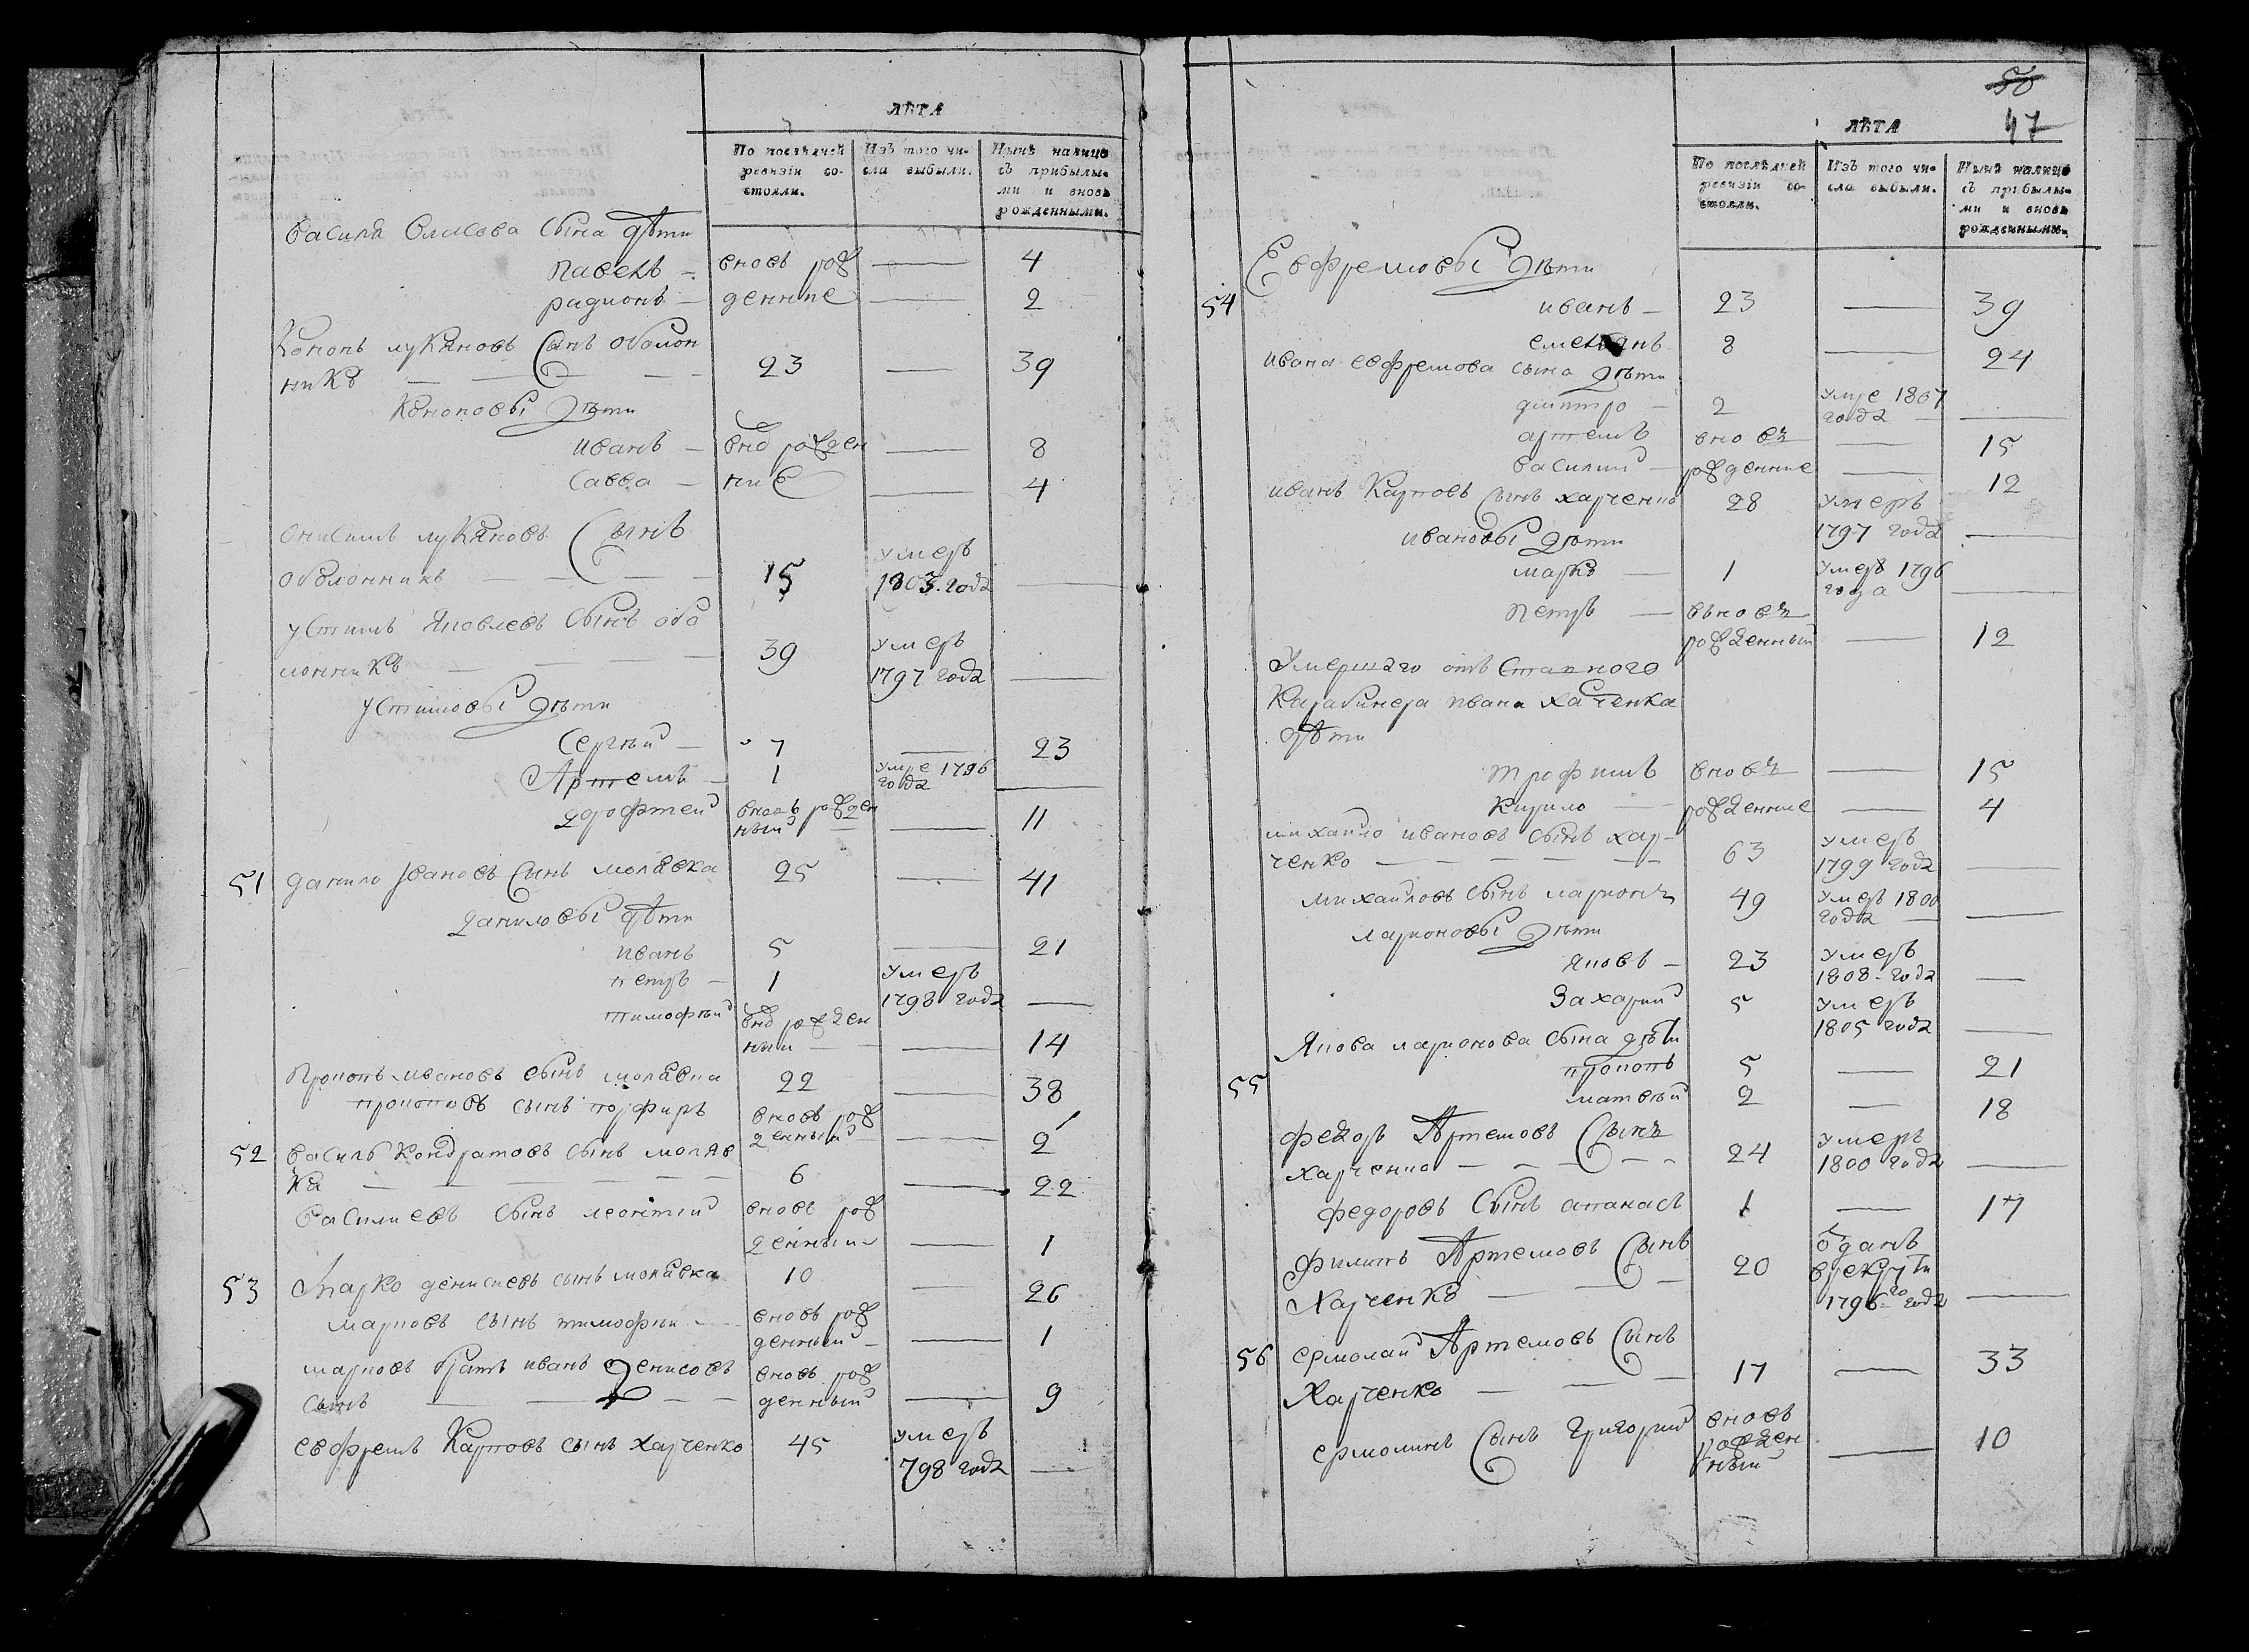 ЛѢТА
По послѣдней ревизіи со-стояли.
Изъ того чи-сла выбыли.
Нынѣ налицо съ прибылы-ми и вновь рожденными.
Василя Власова сына дѣти
Павелъ — вновь рож — 4
радионъ — денние — 2
Кононъ лукяновъ Сынъ оболон
никъ — 23 — 39
Кононовы дѣти
иванъ — вно рожден — 8
Савва — ние — 4
Онисимъ лукяновъ Сынъ
оболонникъ — 15 умеръ 1803. года —
устимъ Яковлевъ Сынъ обо
лонникъ — 39 умеръ 1797 года —
устимовы дѣти
Сергѣй — 7 — 23
Артемъ — 1 умре 1796 года —
дорофтей вновь рожден ный — 11
51 данило Ивановъ Синъ молявка 25 — 41
даниловы дѣти
иванъ 5 — 21
петръ — 1 умеръ 1798 года —
тимофѣй вно рожден ный — 14
Прокопъ ивановъ сынъ молявка 22 — 38
прокоповъ сынъ порфиръ вновь рож денный — 2
52 василь Кондратовъ сынъ моляв
ка — 6 — 22
Василиевъ сынъ леонтий вновь рож денный — 1
53 Марко денисиевъ сынъ молявка 10 — 26
марковъ сынъ тимофѣй — вновь рож денный — 1
марковъ братъ иванъ Денисовъ вновь рож
сынъ — денный — 9
евфремъ Карповъ сынъ харченко 45 умеръ 798 года —
50
47
ЛѢТА
По послѣдней ревизіи со-стояли.
Изъ того чи-сла выбыли.
Нынѣ налицо съ прибылы-ми и вновь рожденными.
Евфремовы дѣти
54 иванъ — 23 — 39
емелянъ 8 — 24
ивана евфремова сына дѣти
дмитро — 2 умре 1807 года —
артемъ вновь — 15
василий — рожденние — 12
иванъ Карповъ Сынъ харченко 28 умеръ 1797 года —
ивановы дѣти
марко — 1 умеръ 1796 года —
петръ — вьновь рожденный — 12
Умершаго отъ Ставного
Карабинера ивана харченка
дѣти
трофимъ вновь — 15
кирило — рожденние — 4
михайло ивановъ сынъ хар-
ченко — 63 умеръ 1799 года —
михайловъ сынъ ларионъ 49 умеръ 1800 года —
ларионовы дѣти
яковъ — 23 умеръ 1808. года —
Захарий 5 умеръ 1805 года —
Якова ларионова сына дѣти
55 прокопъ 5 — 21
матвѣй 2 — 18
федоръ Артемовъ Сынъ
харченко — 24 умеръ 1800 года —
федоровъ Сынъ апанасъ 1 — 17
филипъ Артемовъ Сынъ
Харченко — 20 ѿданъ врекруты 1796го года —
56 ермолай Артемовъ Сынъ
Харченко — 17 — 33
ермолинъ Сынъ Григорий вновь рожден ный — 10